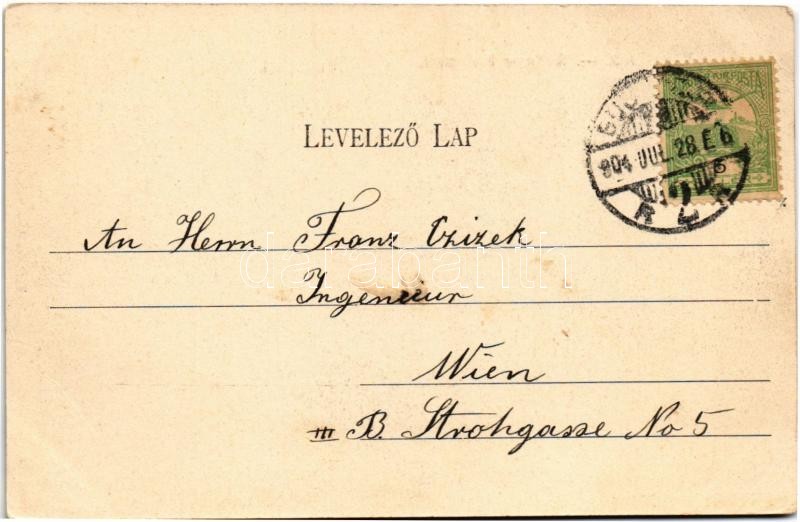 LEVELEZŐ LAP
904 JUL 28 E 6
An Herrn Franz Czizek
darabanth
Ingenieur
Wien
III B. Strohgasse No 5